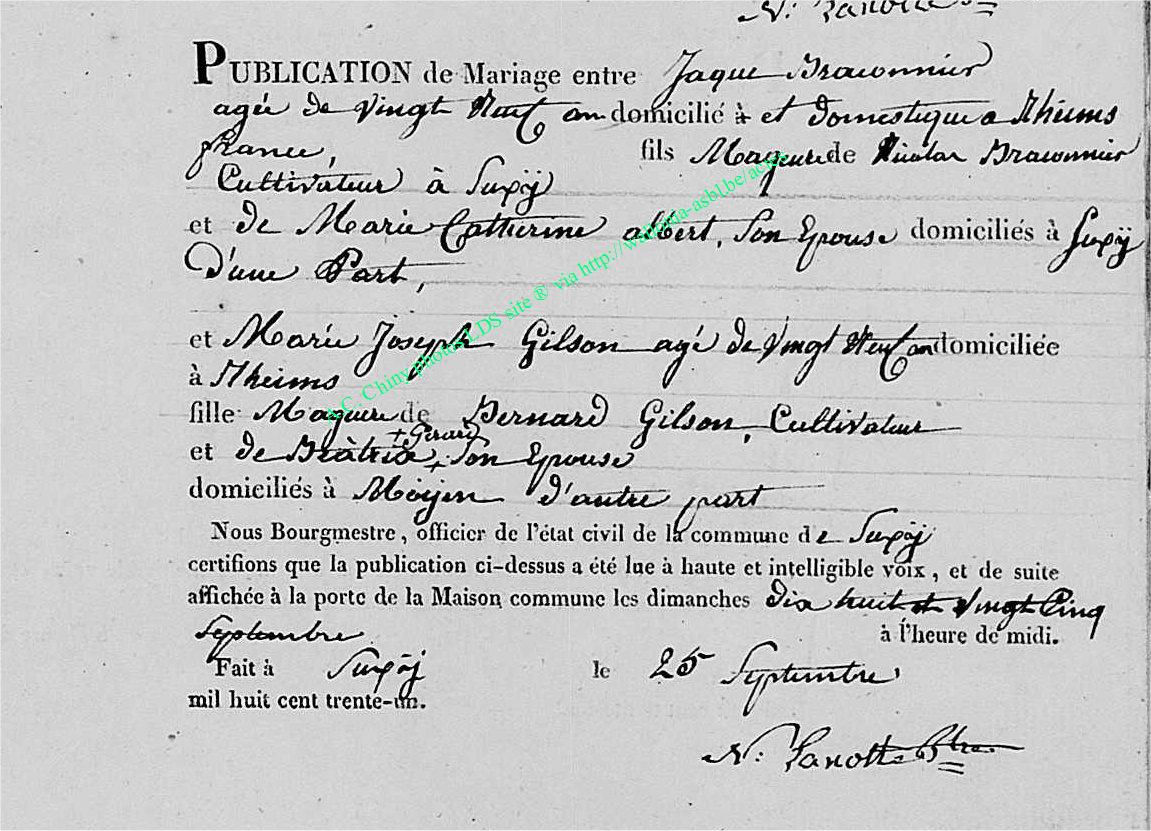 N: Lanotte
PUBLICATION de Mariage entre Jaque Braconnier
agée de Vingt Neuf an domicilié à et domestique a Rheims
france, fils Mageure de Nicolas Braconnier
Cultivateur à Suxÿ
et de Marie Catherine albert, Son Epouse domiciliés à Suxÿ
D'une Part,
et Marie Joseph Gilson agé de Vingt Neuf an domiciliée
à Rheims
fille Mageure de Bernard Gilson, Cultivateur
+ Gerard
et de Béàtrix + Son Epouse
domiciliés à Moyen d'autre part
Nous Bourgmestre, officier de l'état civil de la commune de Suxÿ
certifions que la publication ci-dessus a été lue à haute et intelligible voix, et de suite
affichée à la porte de la Maison commune les dimanches dix huit et Vingt Cinq
Septembre à l'heure de midi.
Fait à Suxÿ le 25 Septembre
mil huit cent trente-un.
N: Lanotte Btre
A.C. Chiny photos LDS site ® via http://wallonia-asbl.be/actes